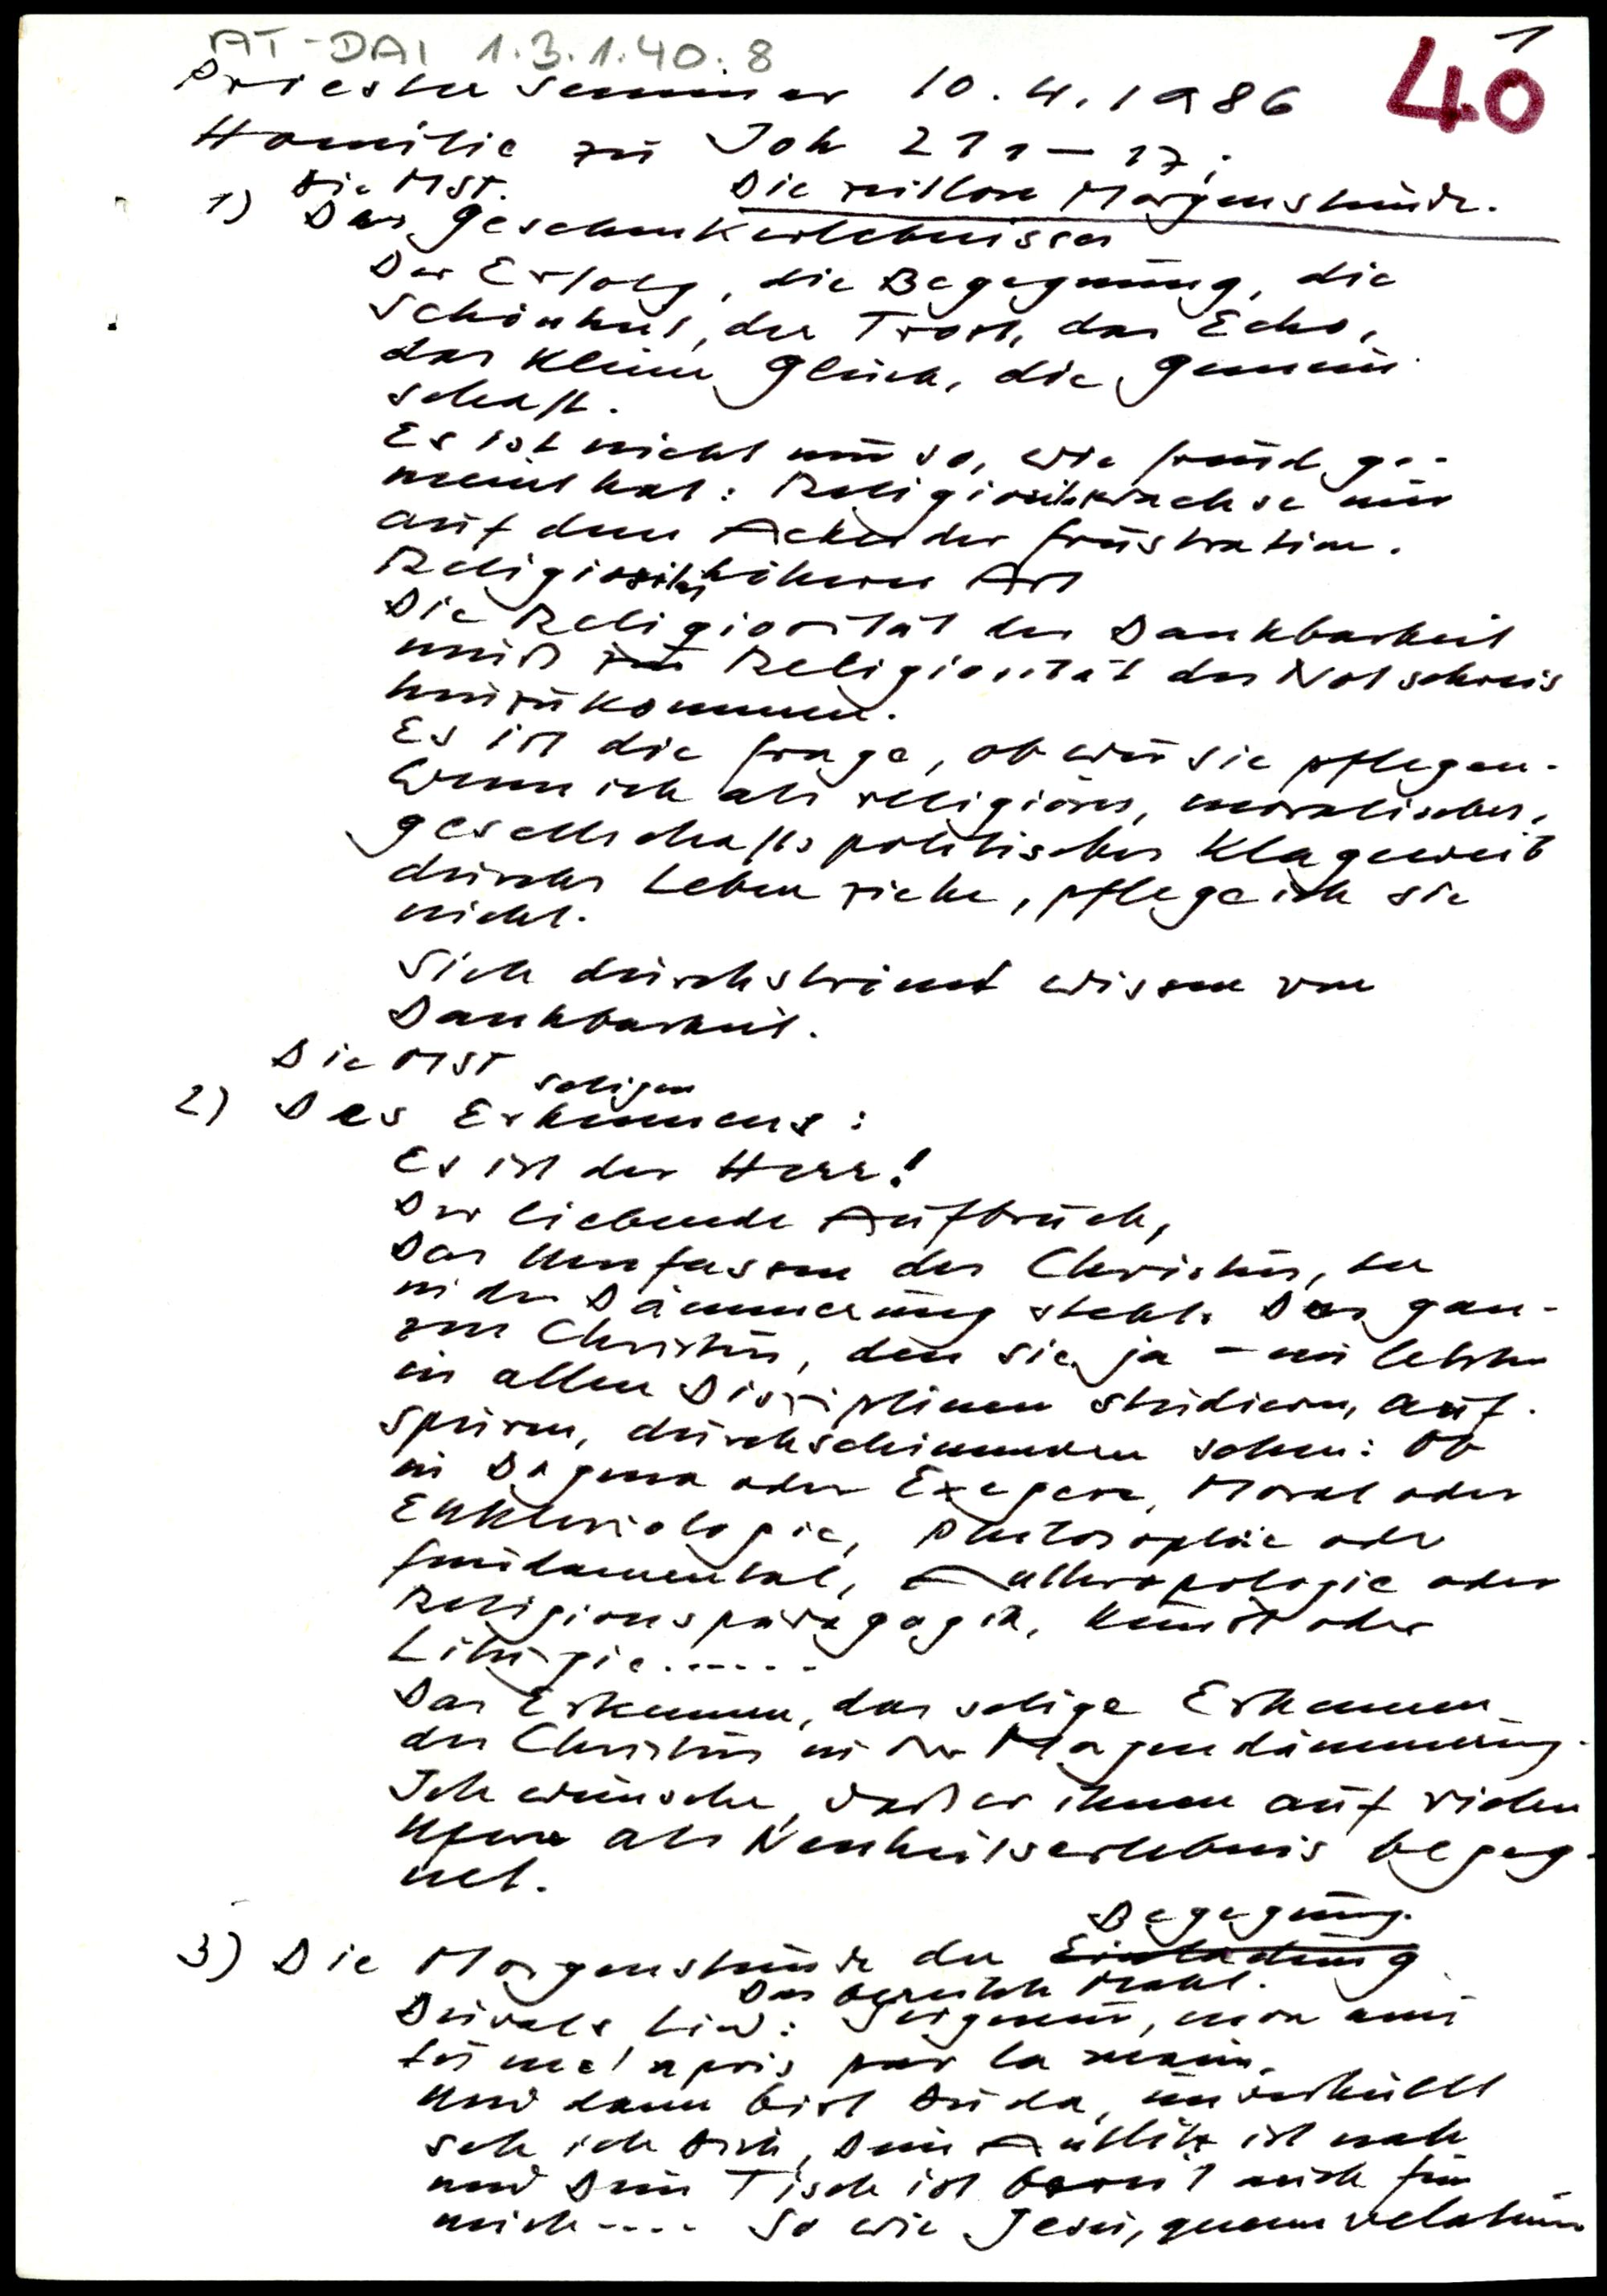 AT-DAI 1.3.1.40.8
1
40
Priesterseminar 10.4.1986
Homilie zu Joh 21 1-17:
Die zeitlose Morgenstunde.
Die MST.
1) Der Geschenkerlebnisse
Der Erfolg, die Begegnung, die
Schönheit, der Trost, das Echo,
das kleine Glück, die Gemein
schaft.
Es ist nicht nur so, wie Freud ge-
meint hat: Religiosität wachse nur
auf dem Acker der Frustration.
Religiosität höherer Art
Die Religiosität der Dankbarkeit
muß zur Religiosität des Notschreis
hinzukommen.
Es ist die Frage, ob wir sie pflegen.
Wenn ich als religiöses, moralisches,
gesellschaftspolitisches Klageweib
durchs Leben ziehe, pflege ich sie
nicht.
Sich durchströmt wissen von
Dankbarkeit.
Die MST
2) Des seligen Erkennens:
Es ist der Herr!
Der liebende Aufbruch,
Das Umfassen des Christus, der
in der Dämmerung steht. Des gan-
zen Christus, den Sie ja - im letzten
in allen Disziplinen studieren, auf-
spüren, durchschimmern sehen: Ob
in Dogma oder Exegese, Moral oder
Ekklesiologie, Philosophie oder
Fundamental, Anthropologie oder
Religionspädagogik, Kunst oder
Liturgie......
Das Erkennen, das selige Erkennen
des Christus in der Morgendämmerung.
Ich wünsche, daß er ihnen auf vielen
Ufern als Neuheitserlebnis begeg-
net.
3) Die Morgenstunde der Einladung Begegnung.
Das bereitete Mahl.
Duvals Lied: Seigneur, mon ami
tu me'a pris par la main.
Und dann bist Du da, unverhüllt
seh ich Dich, Dein Antlitz ist nah
und Dein Tisch ist bereit auch für
mich.... So wie Jesu, quem velatum